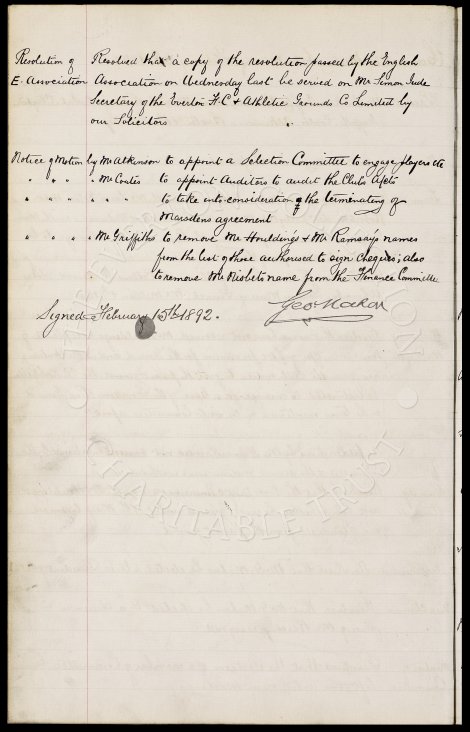 Resolution of Resolved that a copy of the resolution passed by the English
E. Association Association on Wednesday last be served on Mr Simon Jude
Secretary of the Everton F.C & Athletic Grounds Co Limited by
our Solicitors
Notice of Motion by Mr Atkinson to appoint a Selection Committee to engage players etc
" " " " Mr Coates to appoint Auditors to audit the Clubs A/cts
" " " " " " to take into consideration the terminating of
Marsdens agreement
" " " " Mr Griffiths to remove Mr Houlding's & Mr Ramsay's names
from the list of those authorised to sign cheques; also
to remove Mr Nisbets name from the Finance Committee
Signed February 15th 1892. Geo Mahon
CHARITABLE TRUST